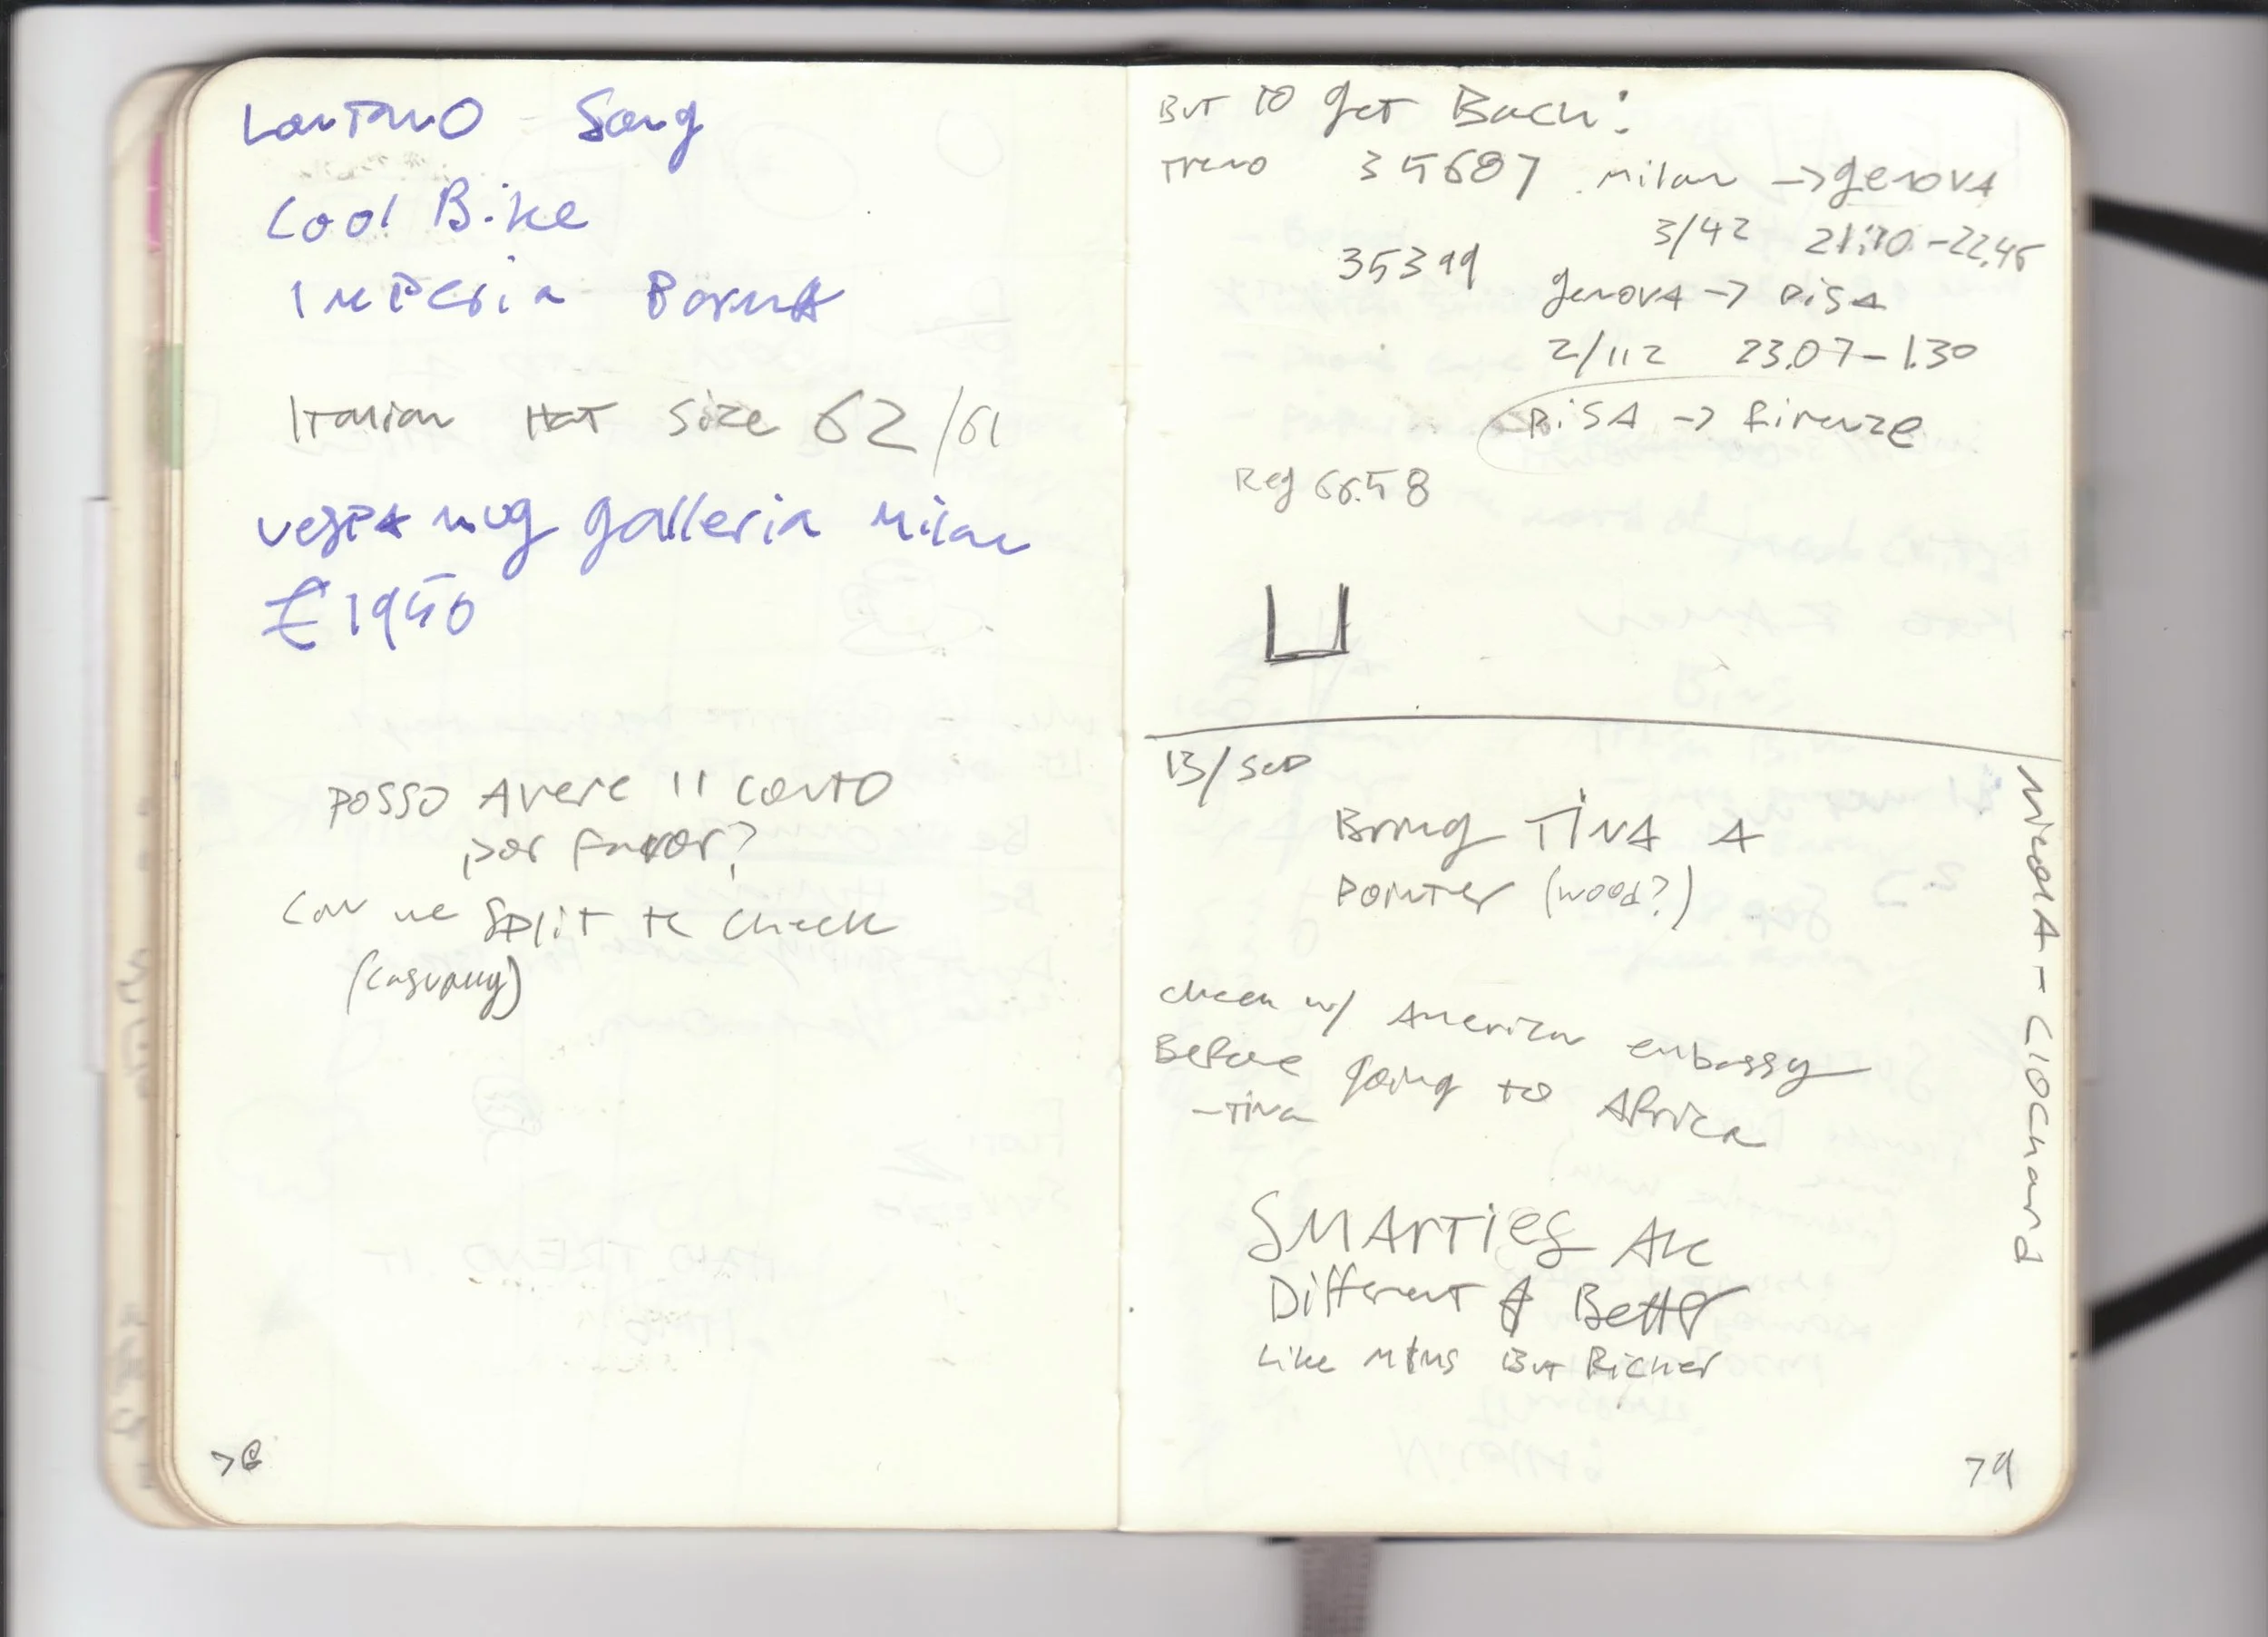 Lontano Song
Cool Bike
Imperia
Italian Hat size 62/61
vespa mug galleria Milan
€1950
posso Avere il conto
por favor?
Can we split te check
76
But to get Back:
Treno 35687 Milan -> genova
3/42 21:10-22,45
35399
genova -> Pisa
2/112 23.07-1.30
Pisa -> firenze
Reg 66.58
13/Sep
Bring Tina A
pointer (wood?)
check w/ American embassy
Before going to Africa
-Tina
Smarties Are
Different & Better
Like M&Ms But Richer
NicolA - Clochard
79